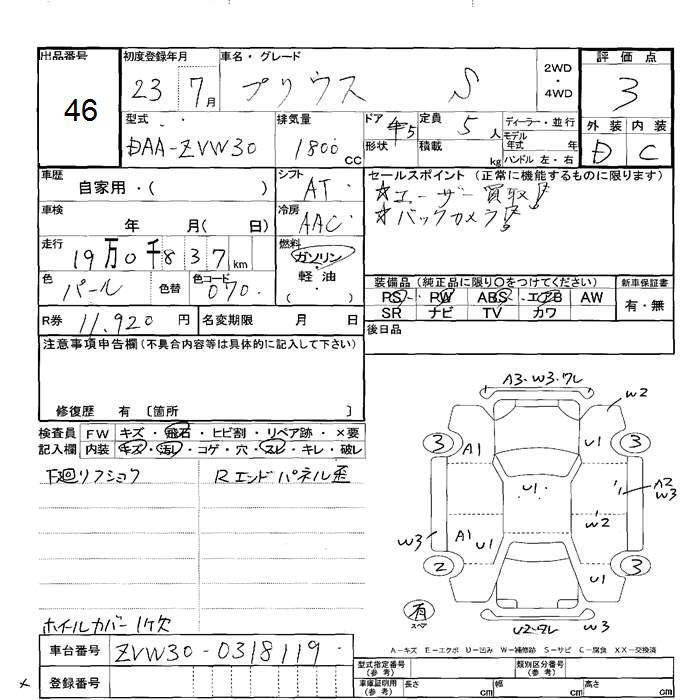 出品番号 初度登録年月 車名・グレード 2WD・4WD 評価点
46 23 7月 プリウス S 3
型式 排気量 ドア形状 定員 ディーラー・並行 外装 内装
DAA-ZVW30 1800 CC 5 5人 モデル年式 年 D C
積載 kg ハンドル 左・右
車歴 シフト セールスポイント (正常に機能するものに限ります)
自家用・( ) AT ☆ユーザー買取!
車検 冷房 ☆バックカメラ!
年 月( 日) AAC
走行 燃料
19万0千837km ガソリン・軽油・( )
色 色替 色コード 装備品 (純正品に限り○をつけてください) 新車保証書
パール 070 PS PW ABS エアB AW 有・無
R券 11,920円 名変期限 月 日 SR ナビ TV カワ
注意事項申告欄(不具合内容等は具体的に記入して下さい) 後日品
修復歴 有 〔箇所 〕
検査員 FW キズ・飛石・ヒビ割・リペア跡・×要
記入欄 内装 キズ・汚レ・コゲ・穴・スレ・キレ・破レ
下廻リフショク Rエンドパネル歪
A3・W3・ワレ
W2
3 A1 U1 3
U1
A2 W3
W2
W3 A1 U1
2 3
有 スペア
U2・ワレ W3
ホイルカバー1ケ欠
A-キズ E-エクボ U-凹み W-補修跡 S-サビ C-腐食 XX-交換済
車台番号 ZVW30-0318119
型式指定番号(参考) 類別区分番号(参考)
登録番号 車庫証明用(参考) 長さ cm 幅 cm 高さ cm